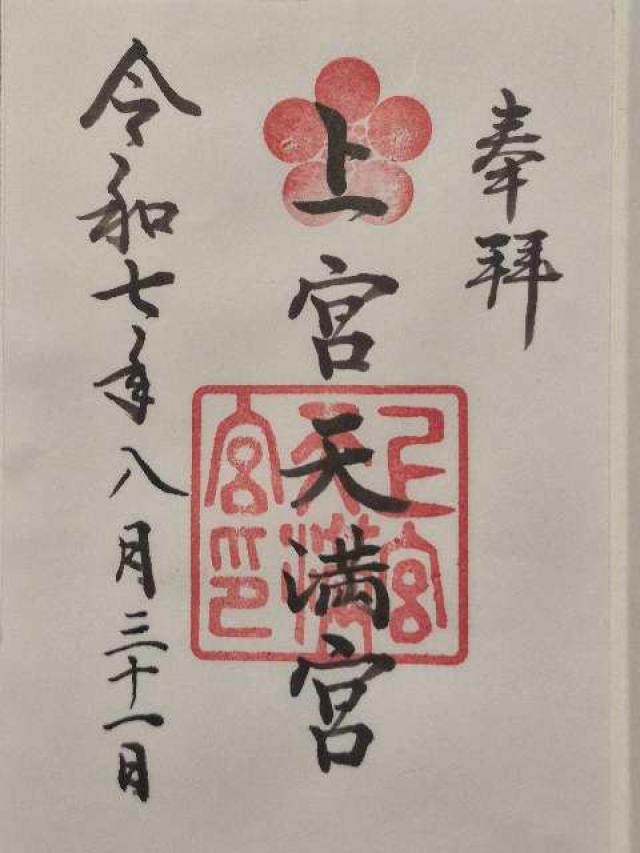 奉拝
上宮天満宮
令和七年八月三十一日
上宮
天満
宮印